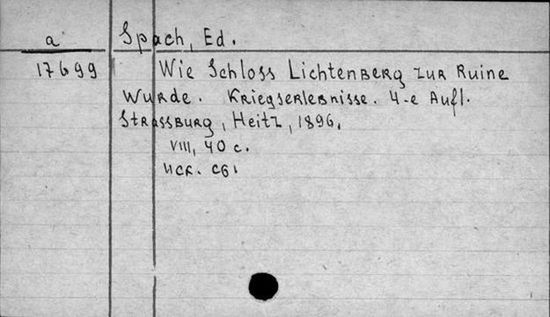 a
17699
Spach, Ed.
Wie Schloss Lichtenberg zur Ruine
wurde. Kriegserlebnisse. 4-e Aufl.
Strassburg, Heitz, 1896.
VIII, 40 c.
иск. сб.